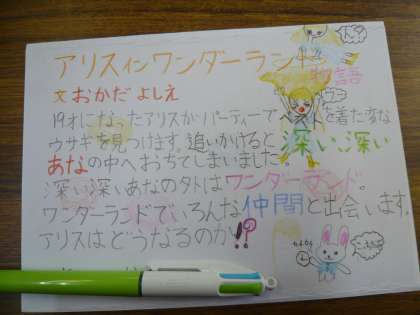 アリスインワンダーランド
物語
文 おかだ よしえ
19才になったアリスがパーティーでベストを着た変な
ウサギを見つけます。追いかけると深い深い
あなの中へおちてしまいました。
深い深いあなの外はワンダーランド。
ワンダーランドでいろんな仲間と出会います。
アリスはどうなるのか!?